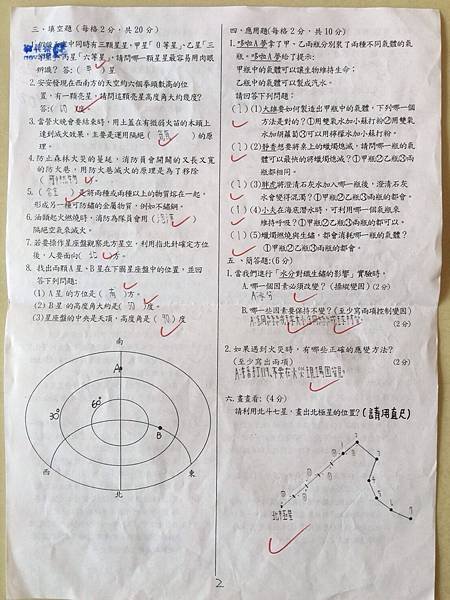 三、填空題(每格2分,共20分)
中同時有三顆星星,甲星「0等星」、乙星「三
星」、丙星「六等星」,請問哪一顆星星最容易用肉眼
辨識? 答:(甲)星
2.安安發現在西南方的天空約六個拳頭數高的位
置,有一顆亮星,請問這顆亮星高度角大約幾度?
答:(60)度
3.當營火晚會要結束時,用土蓋在有微弱火苗的木頭上
達到滅火效果,主要是運用隔絕(氧氣)的原
理。
4.防止森林大火的蔓延,消防員會開闢的又長又寬
的防火巷,用防火巷滅火的原理是為了移除
(可燃物)
5.(合金)是將兩種或兩種以上的物質熔在一起,
形成另一種可防鏽的金屬物質,例如不鏽鋼。
6.油類起火燃燒時,消防為隊員會用(泡沫)
隔絕空氣來滅火。
7.若要操作星座盤觀察北方星空,利用指北針確定方位
後,人要面向(北)方。
8.找出兩顆A星、B星在下圖星座盤中的位置,並回
答下列問題:
(1)A星的方位是(南)方。
(2)B星的高度角大約是(30)度。
(3)星座盤的中央是天頂,高度角是(90)度
南
A
30°
60°
B
西
東
北
四、應用題(每格2分,共10分)
1.哆啦A夢拿了甲、乙兩瓶分別裝了兩種不同氣體的氣
瓶。哆啦A夢給了提示:
甲瓶中的氣體可以讓生物維持生命;
乙瓶中的氣體可以製成汽水。
請回答下列問題:
(1)大雄要如何製造出甲瓶中的氣體,下列哪一個
方法是對的?①用雙氧水加小蘇打粉②用雙氧
水加胡蘿蔔③可以用檸檬水加小蘇打粉。
(2)胖虎想要將桌上的蠟燭熄滅,請問哪一瓶的氣
體可以最快的將蠟燭熄滅?①甲瓶②乙瓶③兩
瓶都相同。
(3)胖虎將澄清石灰水加入哪一瓶後,澄清石灰
水會變得混濁?①甲瓶②乙瓶③兩瓶的都不會。
(4)小夫在海底潛水時,可利用哪一個氣瓶來
維持呼吸?①甲瓶②乙瓶③兩瓶的都可以。
(5)蠟燭燃燒與生鏽,都會消耗哪一瓶的氣體?
①甲瓶②乙瓶③兩瓶的都會。
五、簡答題:(6分)
1.當我們進行「水分對鐵生鏽的影響」實驗時,
A.哪一個因素必須改變?(操縱變因)(2分)
A:水分
B.哪一些因素要保持不變?(至少寫兩項控制變因)
(2分)
2.如果遇到火災時,有哪些正確的應變方法?
(至少寫出兩項) (2分)
六、畫畫看:(4分)
請利用北斗七星,畫出北極星的位置?(請用直尺)
北極星
2